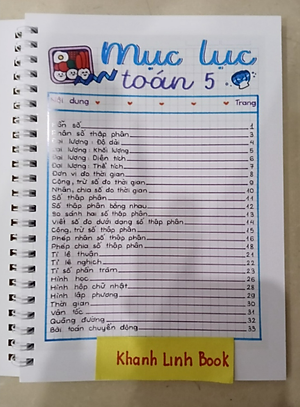 Mục lục
toán 5
Nội dung Trang
Phân số 1
Phân số thập phân 3
Đại lượng: Độ dài 4
Đại lượng: Khối lượng 5
Đại lượng: Diện tích 6
Đại lượng: Thể tích 7
Đơn vị đo thời gian 8
Cộng, trừ số đo thời gian 9
Nhân, chia số đo thời gian 10
Số thập phân 11
Số thập phân bằng nhau 12
So sánh hai số thập phân 13
Viết số đo dưới dạng số thập phân 14
Cộng, trừ số thập phân 15
Phép nhân số thập phân 16
Phép chia số thập phân 18
Tỉ lệ thuận 21
Tỉ lệ nghịch 22
Tỉ số phần trăm 23
Hình học 26
Hình hộp chữ nhật 28
Hình lập phương 29
Thời gian 30
Vận tốc 31
Quãng đường 32
Bài toán chuyển động 33
Khanh Linh Book